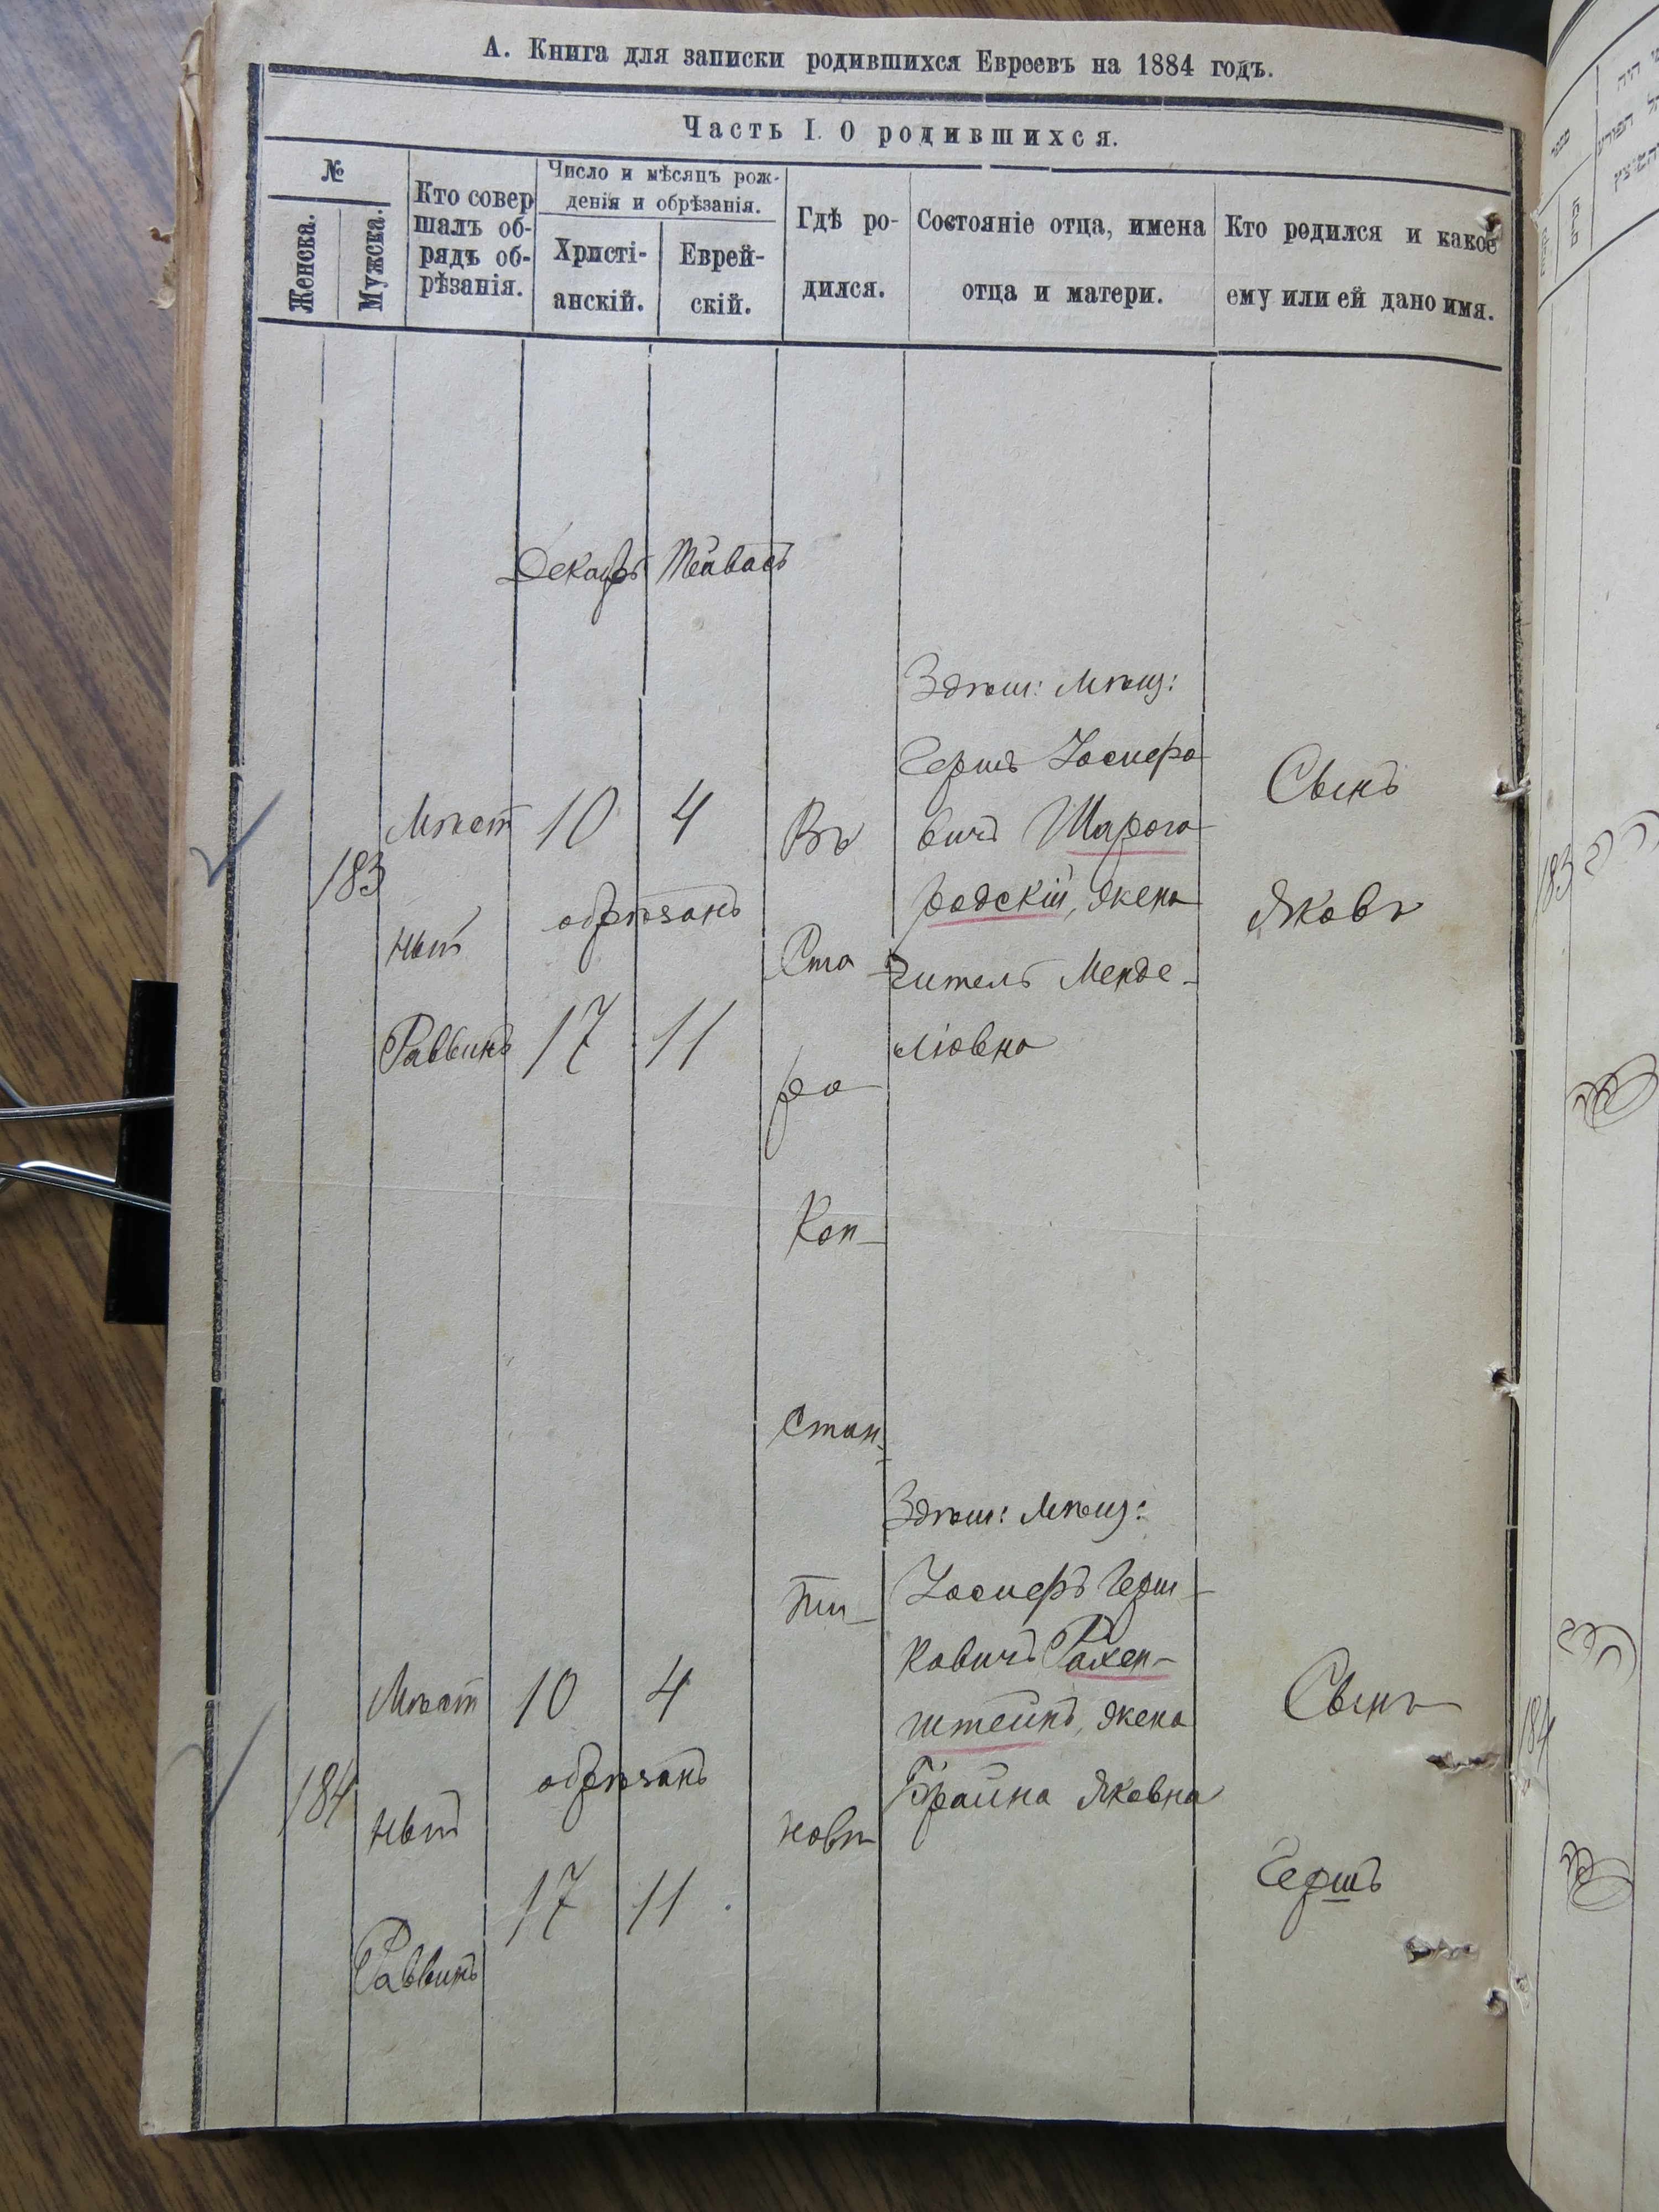 А. Книга для записки родившихся Евреевъ на 1884 годъ.
Часть I. О родившихся.
№
Женска.
Мужска.
Кто совер
шалъ об-
рядъ об-
рѣзанія.
Число и мѣсяцъ рож-
денія и обрѣзанія.
Христі-
анскій.
Еврей-
скій.
Гдѣ ро-
дился.
Состояніе отца, имена
отца и матери.
Кто родился и какое
ему или ей дано имя.
Декабрь Тейвасъ
183
Мѣст
ный
Раввинъ
10 4
обрѣзанъ
17 11
Въ
Ста
ро
Кон-
стан-
ти-
новѣ
Здѣш: Мѣщ:
Гершъ Іосифо
вичъ Шарого-
родскій, жена
Гитель Менде-
ліовна
Сынъ
Яковъ
184
Мѣст
ный
Раввинъ
10 4
обрѣзанъ
17 11
Здѣш: Мѣщ:
Іосифъ Герш-
ковичъ
штейнъ, жена
Брайна Яковна
Сынъ
Гершъ
183
184